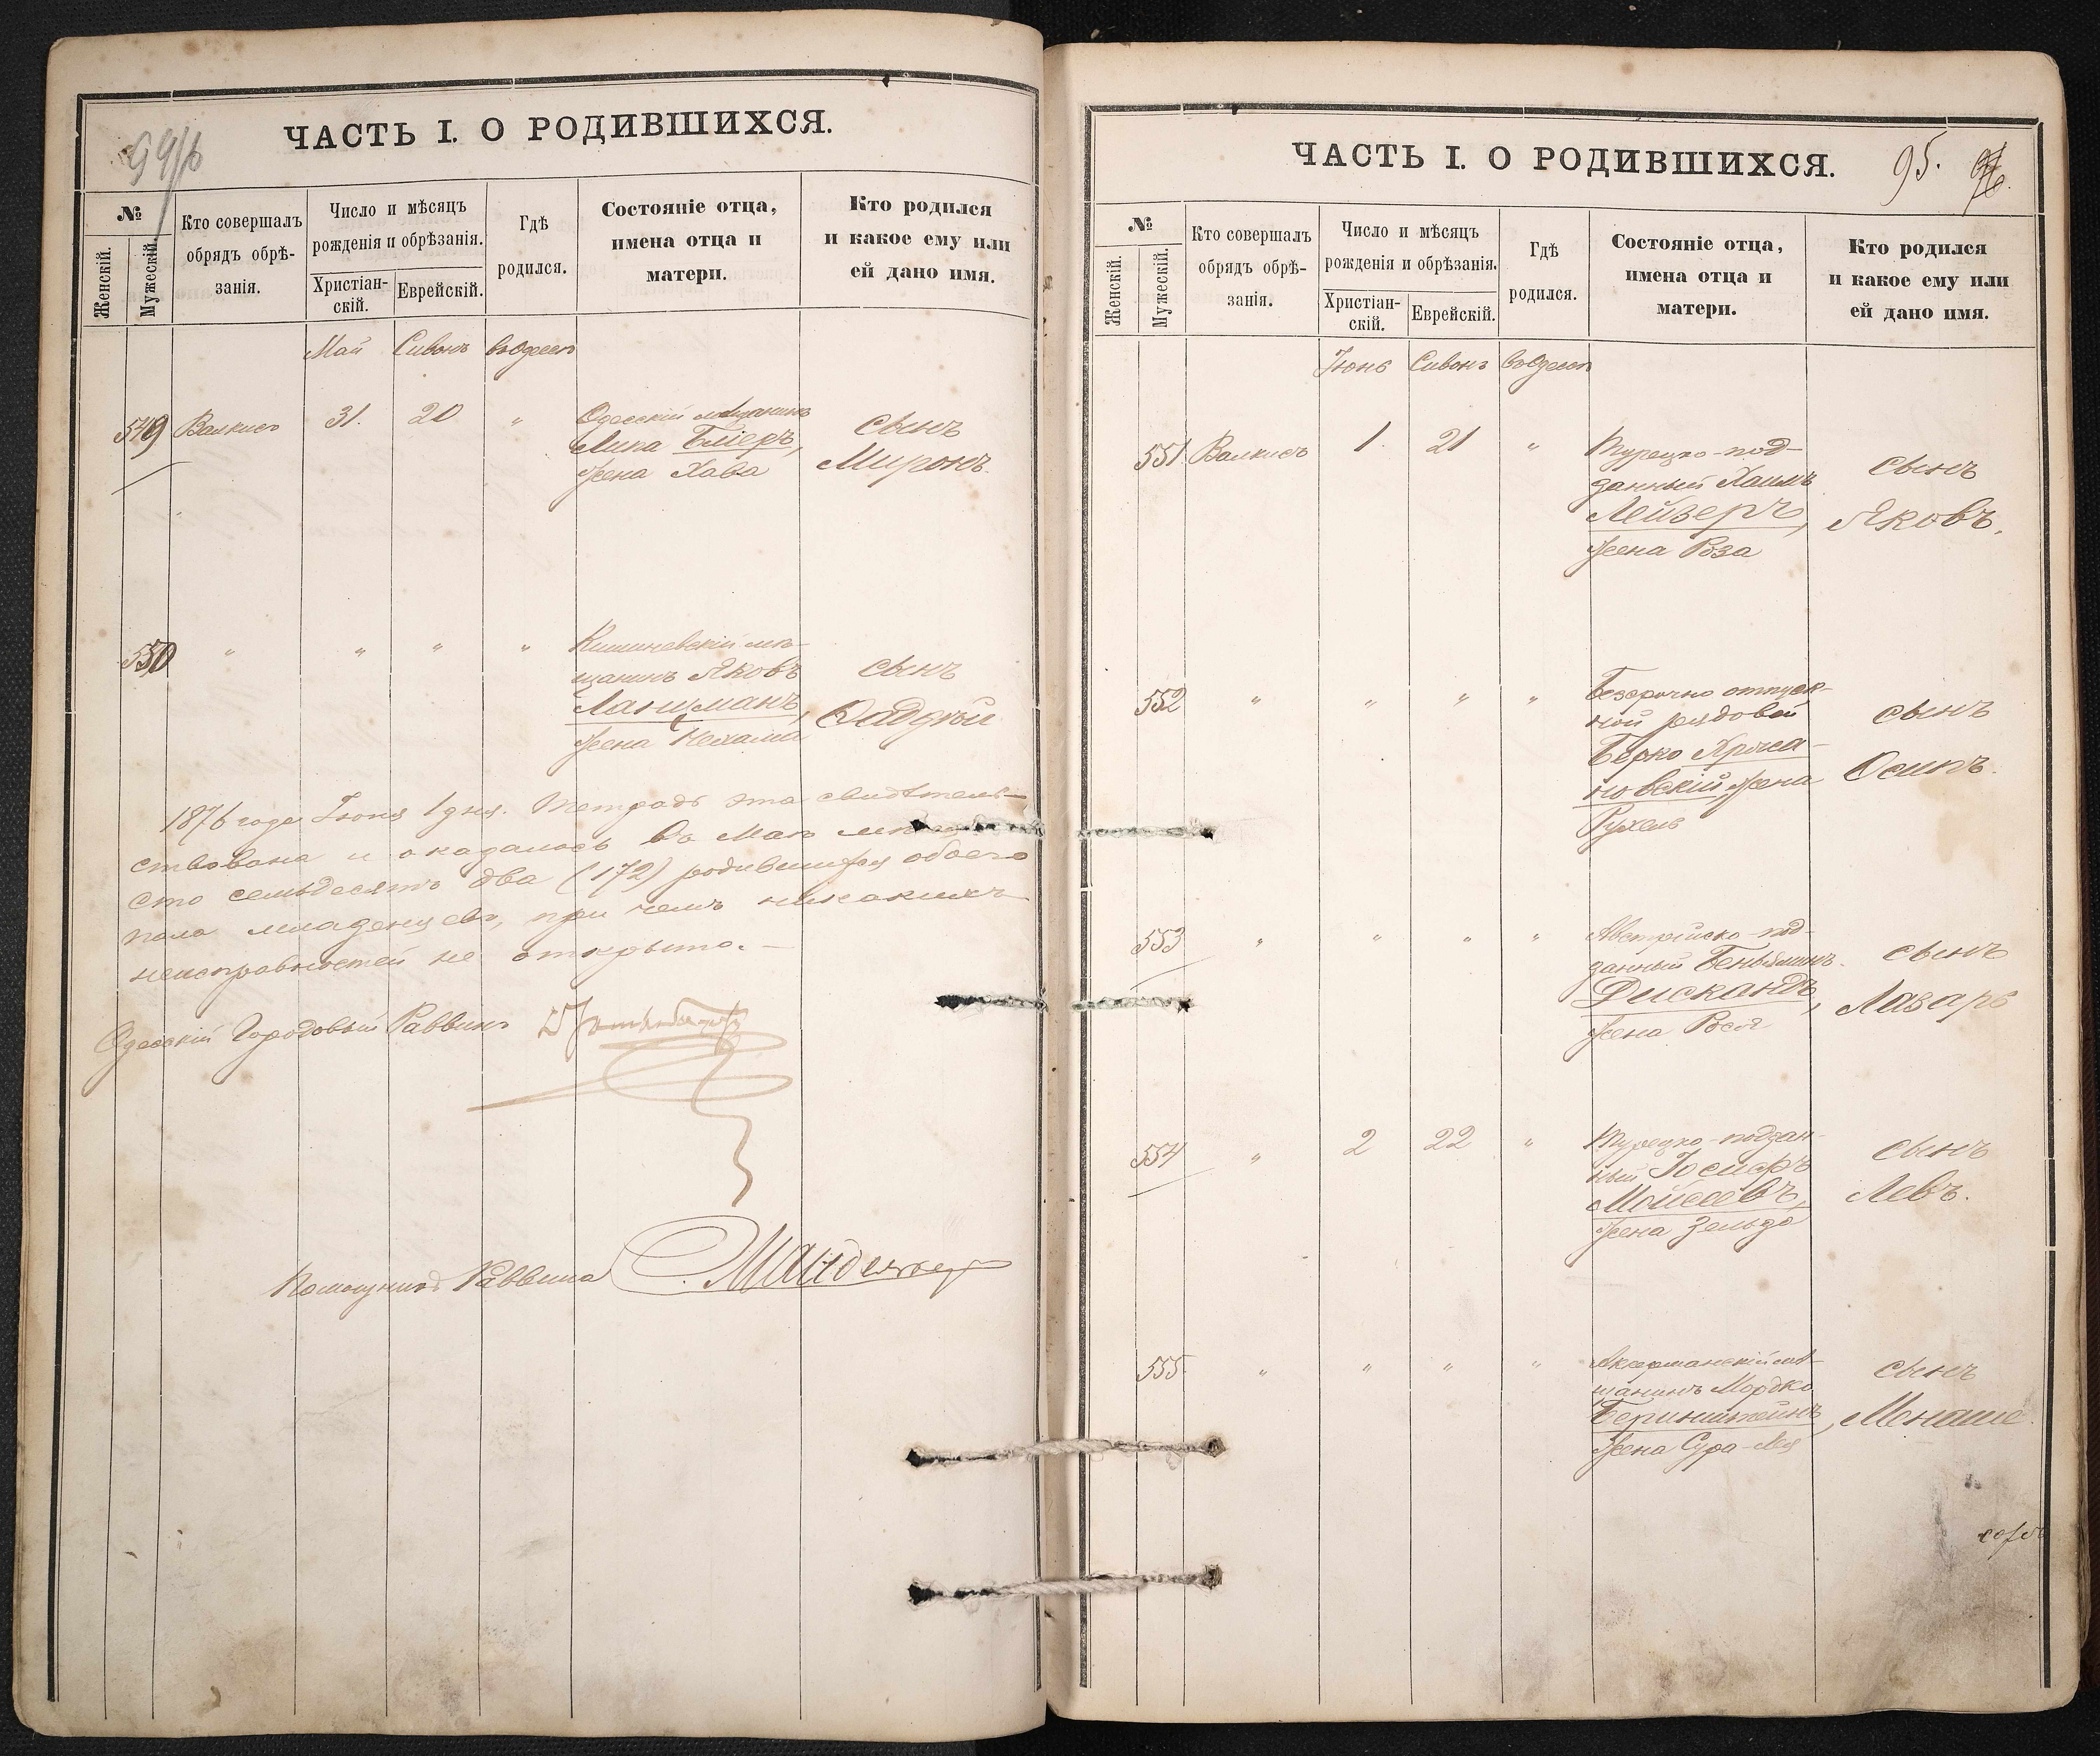 ЧАСТЬ I. О РОДИВШИХСЯ.
№
Женскій.
Мужескій.
Кто совершалъ
обрядъ обрѣ-
занія.
Число и мѣсяцъ
рожденія и обрѣзанія.
Христіан-
скій.
Еврейскій.
Гдѣ
родился.
Состояніе отца,
имена отца и
матери.
Кто родился
и какое ему или
ей дано имя.
Май Сивонъ въ Одессѣ
549 31. 20 "
Одесскій мѣщанинъ
Липа Блiеръ,
жена Хава
сынъ
Миронъ.
550 " " " "
Кишиневскій мѣ-
щанинъ Яковъ
Ланцманъ,
жена Нехама
сынъ
1876 года Іюня 1 дня. Тетрадь эта свидѣтель-
ствована и оказалось въ Маѣ
сто семьдесятъ два (172) родившихся обоего
пола младенцевъ, при чемъ никакихъ
неисправностей не открыто. —
Одесскій Городовый Раввинъ
Помощникъ Раввина
ЧАСТЬ I. О РОДИВШИХСЯ.
95.
№
Женскій.
Мужескій.
Кто совершалъ
обрядъ обрѣ-
занія.
Число и мѣсяцъ
рожденія и обрѣзанія.
Христіан-
скій.
Еврейскій.
Гдѣ
родился.
Состояніе отца,
имена отца и
матери.
Кто родился
и какое ему или
ей дано имя.
Іюнь Сивонъ въ Одессѣ
551 1 21 "
Турецко-под-
данный Хаимъ
Лейзеръ,
жена Роза
сынъ
Яковъ.
552 " " " "
Безсрочно отпуск-
ной рядовой
Берко
новскій, жена
Рухель
сынъ
Осипъ.
553 " " " "
Австрійско-под-
данный Беньяминъ
Дискандъ,
жена Рося
сынъ
Лазарь
554 " 2 22 "
Турецко-поддан-
ный
Мойсеевъ,
жена Зельда
сынъ
Левъ.
555 " " " "
Аккерманскій мѣ-
щанинъ Мордко
Беринштейнъ,
жена Сура-Лея
сынъ
Менаше.